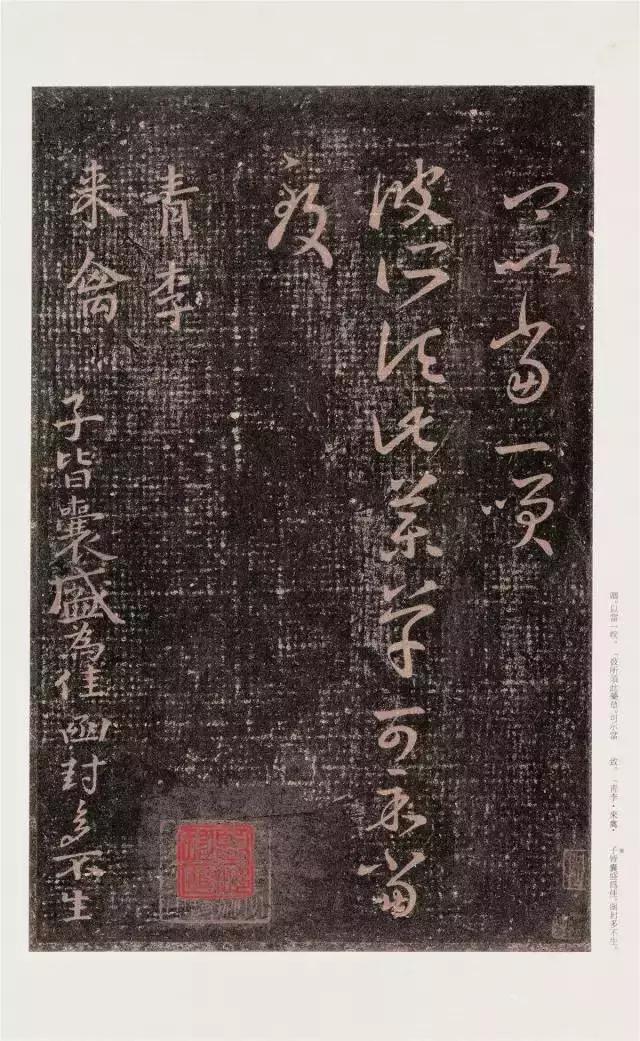 卿以當一咲
彼所須此藥草可示當
致
青李
来禽
子皆囊盛為佳函封多不生
卿,以當一咲。「彼所須此藥草,可示當 致。「青李・來禽・ 子皆囊盛爲佳。函封多不生。